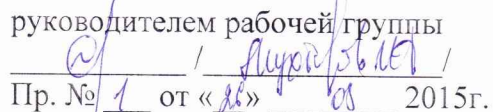 руководителем рабочей группы
/ /
Пр. № 1 от « » 2015г.